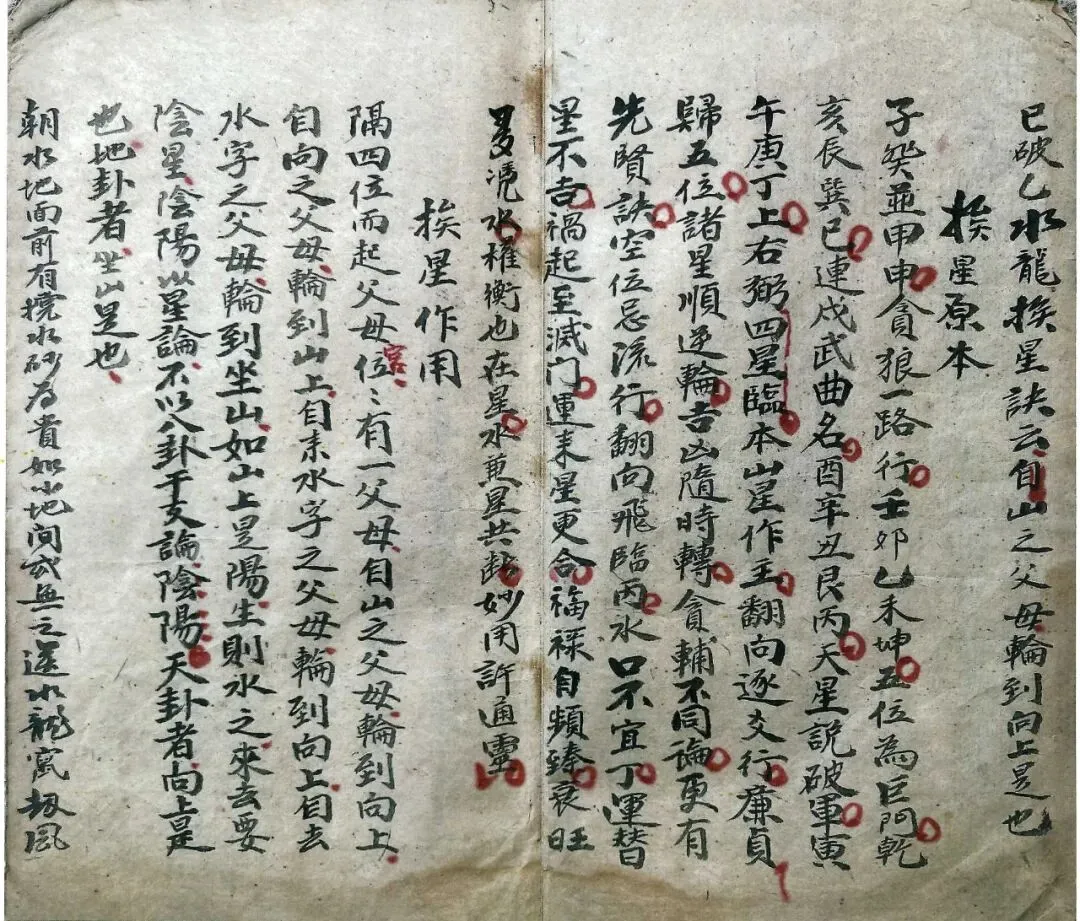 巳破乙水龍挨星訣云自山之父母輪到向上是也
挨星原本
子癸並甲申貪狼一路行壬卯乙未坤五位為巨門乾
亥辰巽巳連戌武曲名酉辛丑艮丙天星說破軍寅
午庚丁上右弼四星臨本山星作主翻向逐爻行廉貞
歸五位諸星順逆輪吉凶隨時轉貪輔不同論更有
先賢訣空位忌流行翻向飛臨丙水口不宜丁運替
星不吉禍起至滅門運來星更合福祿自頻臻衰旺
多凴水權衡也在星水兼星共斷妙用許通靈
挨星作用
隔四位而起父母位宮位有一父母自山之父母輪到向上
自向之父母輪到山上自來水字之父母輪到向上自去
水字之父母輪到坐山如山上是陽生則水之來去要
陰星陰陽以星論不以八卦干支論陰陽天卦者向上是
也地卦者坐山是也
朝水地面前有撓水砂為貴如此地間或無之送水龍寓扱風